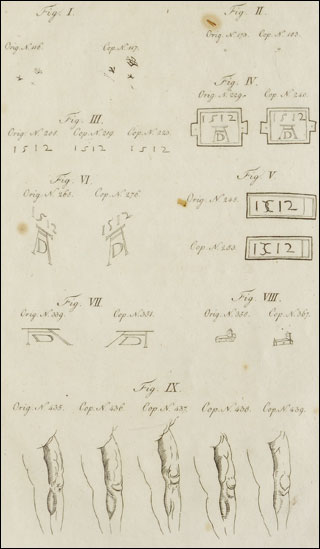 Fig. I.
Orig. N. 116. Cop. N. 117.
Fig. II.
Orig. N. 172. Cop. N. 183.
Fig. III.
Orig. N. 208. Cop. N. 219. Cop. N. 222.
1512 1512 1512
Fig. IV.
Orig. N. 229. Cop. N. 240.
1512 1512
AD AD
Fig. V.
Orig. N. 248.
1512
Cop. N. 253.
1512
Fig. VI
Orig. N. 265. Cop. N. 276.
1512 1512
AD AD
Fig. VII
Orig. N. 339. Cop. N. 351.
AD AD
Fig. VIII.
Orig. N. 356. Cop. N. 367.
Fig. IX
Orig. N. 435. Cop. N. 436. Cop. N. 437. Cop. N. 438. Cop. N. 439.